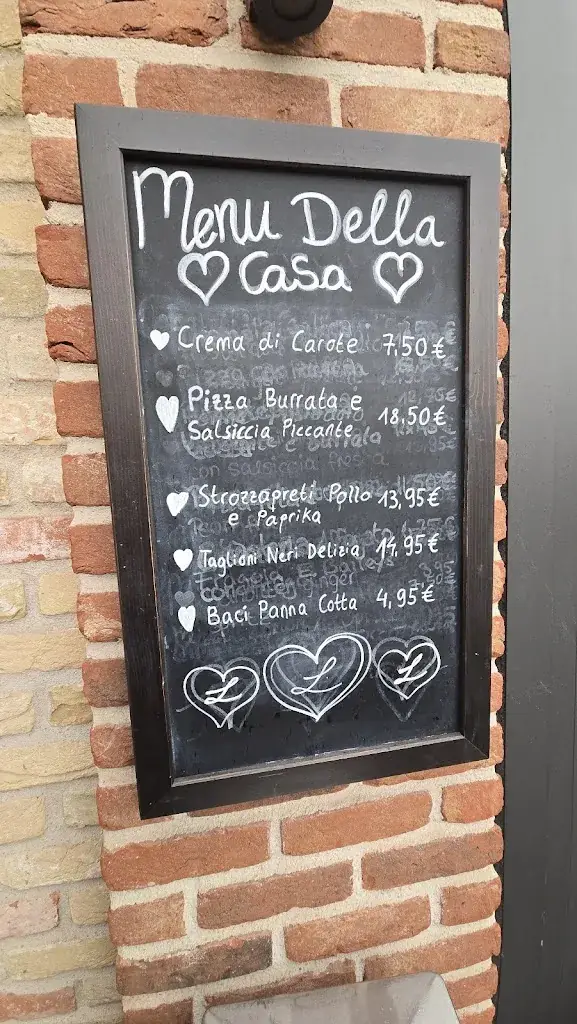 Menu Della
Casa
Crema di Carote 7,50€
Pizza Burrata e
Salsiccia Piccante 18,50€
Strozzapreti Pollo 13,95€
e Paprika
Taglioni Neri Delizia 14,95€
Baci Panna Cotta 4,95€
L L L